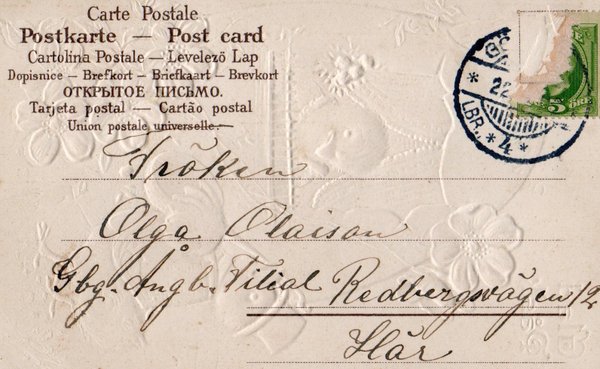 Carte Postale
Postkarte — Post card
Cartolina Postale — Levelező Lap
Dopisnice — Brefkort — Briefkaart — Brevkort
ОТКРЫТОЕ ПИСЬМО.
Tarjeta postal — Cartão postal
Union postale universelle.
22.
LBR.
*4*
5 ÖRE
Fröken
Olga Olaison
Gbg. Angb. Filial Redbergsvägen 12
Här